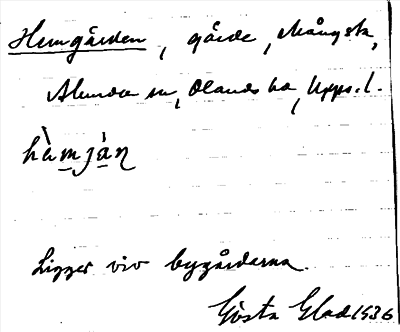 Hemgärden, gärde, Mångsb.,
Alunda sn, Olands hd, Upps. l.
hä̀mjàn
Ligger vid bygårdarna.
Gösta Glad 1936